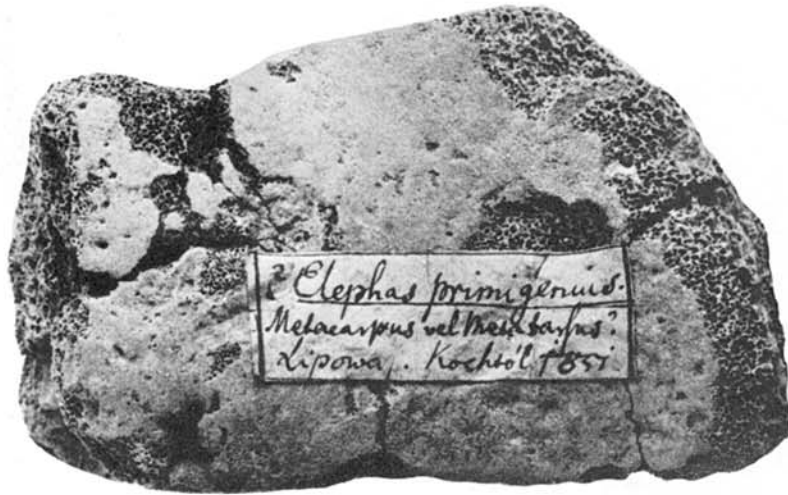 ? Elephas primigenius.
Metacarpus vel Metatarsus?
Lipowa. Kochtól 1851